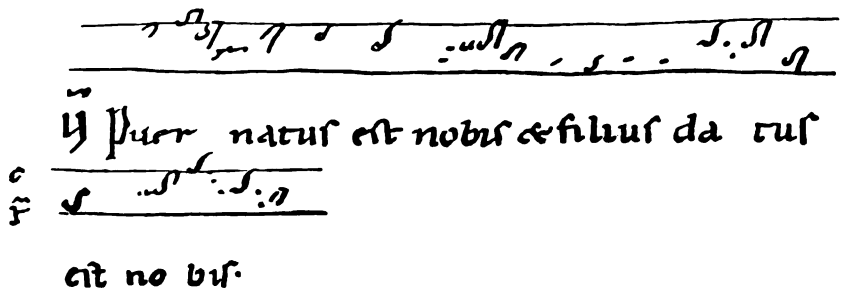 Puer natus est nobis & filius da tus
c
f
est no bis.